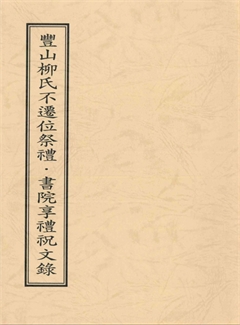 豐山柳氏不遷位祭禮·書院享禮祝文錄